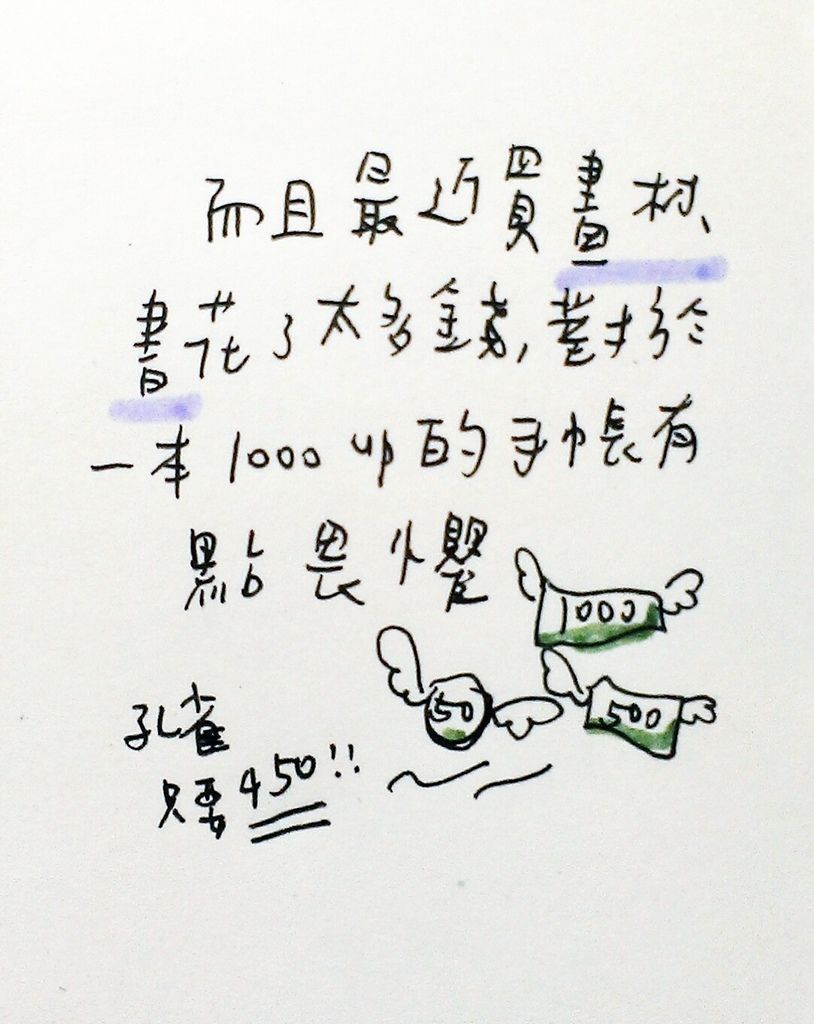 而且最近買畫材、
書花了太多金錢,對於
一本1000up的手帳有
點畏懼
1000
50
500
孔雀
只要450!!